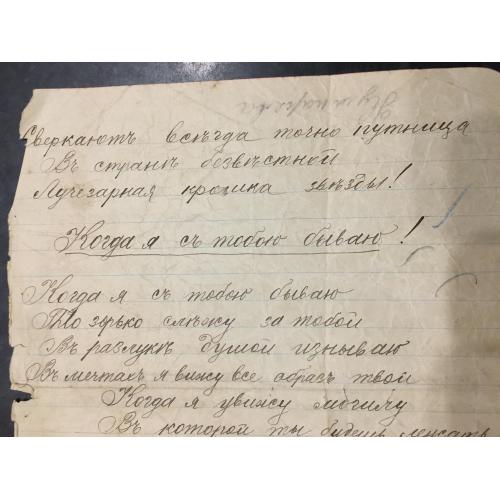 Сверкаютъ всѣгда точно путница
Въ странѣ безвѣстной
Лучезарная крошка звѣзды!
Когда я съ тобою бываю!
Когда я съ тобою бываю
То зорько слѣжу за тобой
Въ разлукѣ душой изнываю
Въ мечтахъ я вижу все образъ твой
Когда я увижу могилу
Въ которой ты будешь лежать